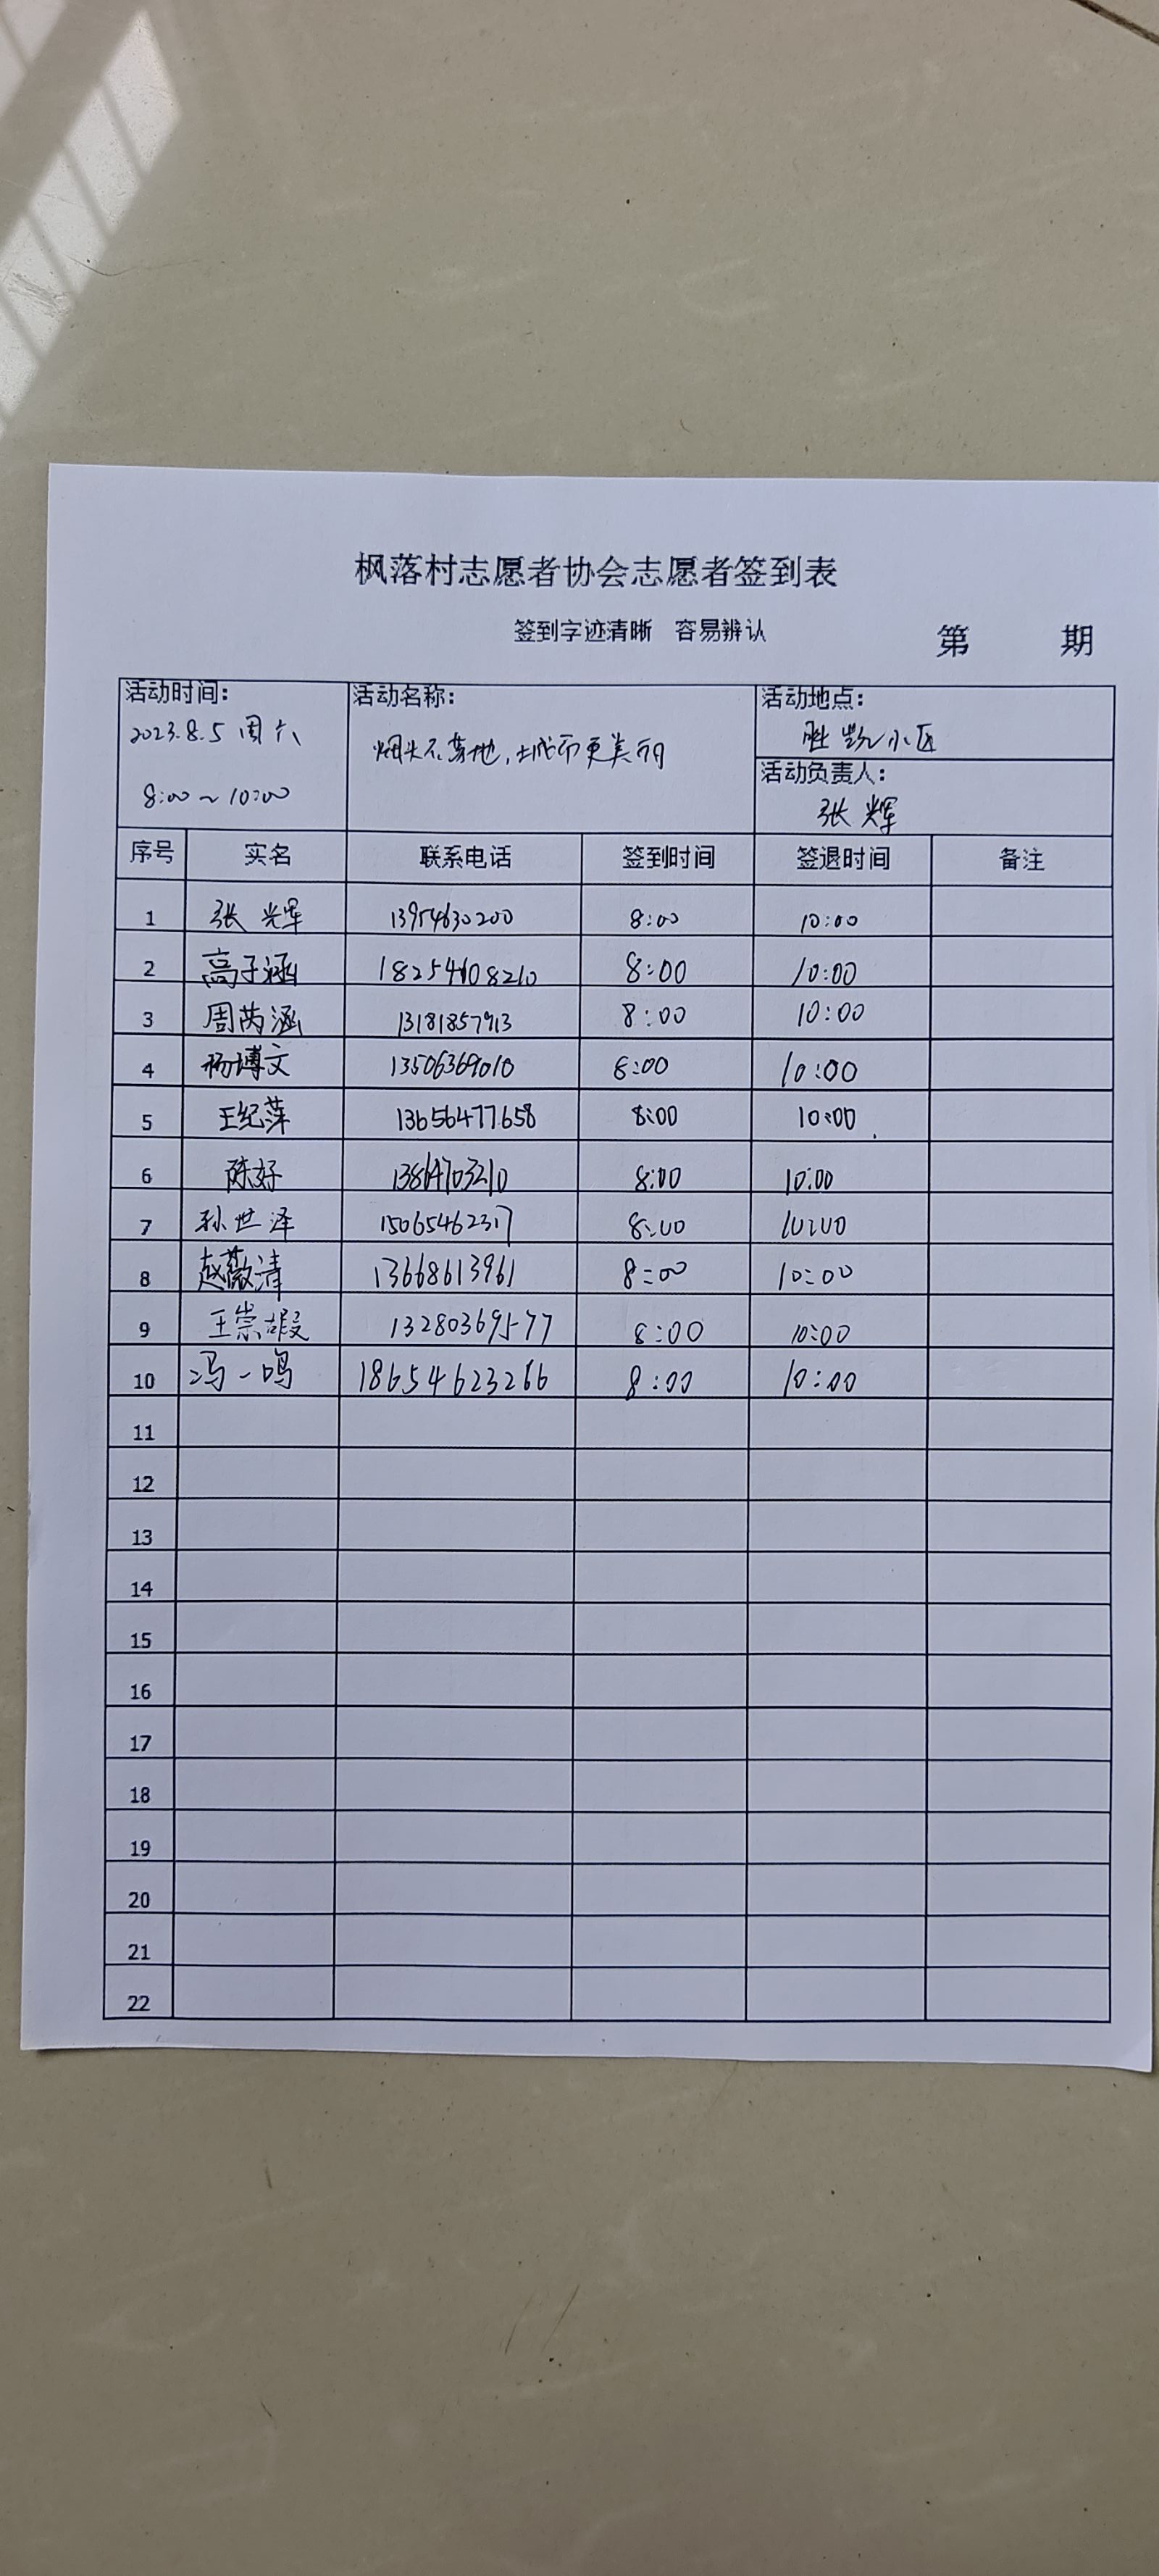 枫落村志愿者协会志愿者签到表
签到字迹清晰 容易辨认
第 期
活动时间: 活动名称: 活动地点:
2023.8.5 周六 烟头不落地,城市更美丽 胜凯小区
8:00～10:00 活动负责人:
张辉
序号 实名 联系电话 签到时间 签退时间 备注
1 张辉 13954630200 8:00 10:00
2 高子涵 18254608210 8:00 10:00
3 周芮涵 13181857913 8:00 10:00
4 杨博文 13506369010 8:00 10:00
5 王纪萍 13656477658 8:00 10:00
6 陈好 13864703210 8:00 10:00
7 孙世泽 15065462317 8:00 10:00
8 赵薇清 13668613961 8:00 10:00
9 王崇嘏 13280369577 8:00 10:00
10 冯一鸣 18654623266 8:00 10:00
11
12
13
14
15
16
17
18
19
20
21
22